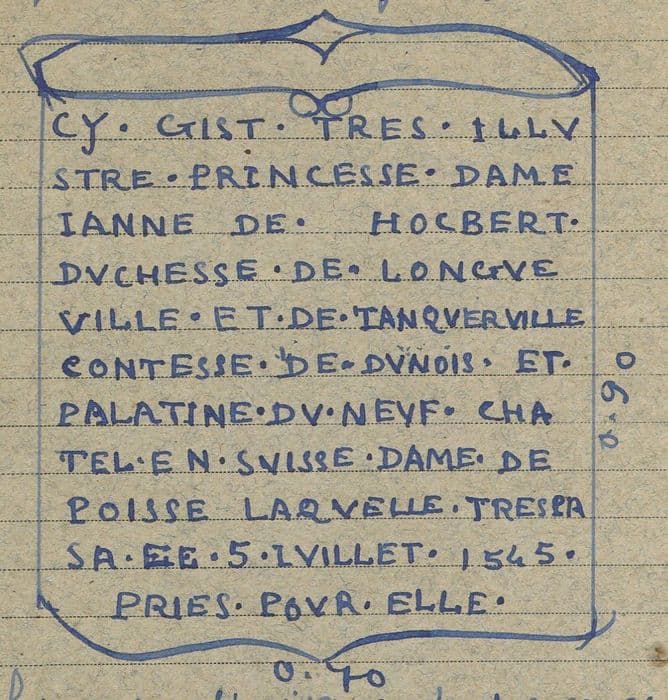 CY · GIST · TRES · ILLV
STRE · PRINCESSE · DAME
IANNE DE · HOCBERT ·
DVCHESSE · DE · LONGVE
VILLE · ET · DE · TANQVERVILLE
CONTESSE · DE · DVNOIS · ET ·
PALATINE · DV · NEVF · CHA
TEL · EN · SVISSE · DAME · DE
POISSE LAQVELLE · TRESPA
SA · · 5 · IVILLET · 1545 ·
PRIES · POVR · ELLE ·
0.90
0.70